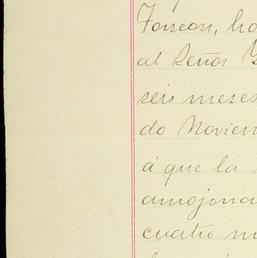 Torreon, ho
al Señor
seis meses
do Noviem
á que la
amojona
cuatro m